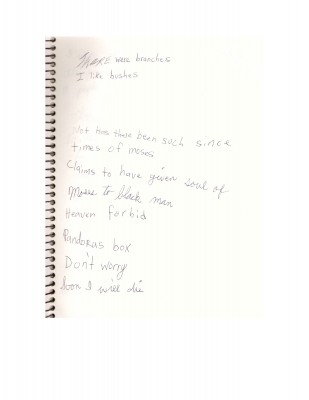 There were branches
I like bushes
Not has there been such since
times of moses
Claims to have given soul of
Moses to black man
Heaven forbid
Pandoras box
Don't worry
Soon I will die